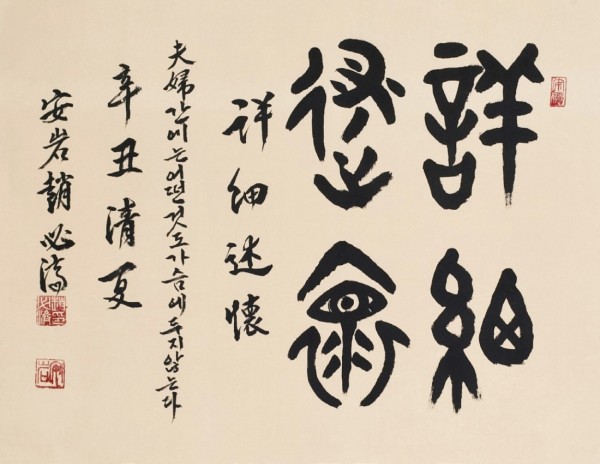 詳細
述懷
詳細述懷
夫婦간에는어떤것도가슴에두지않는다
辛丑清夏
安岩趙必